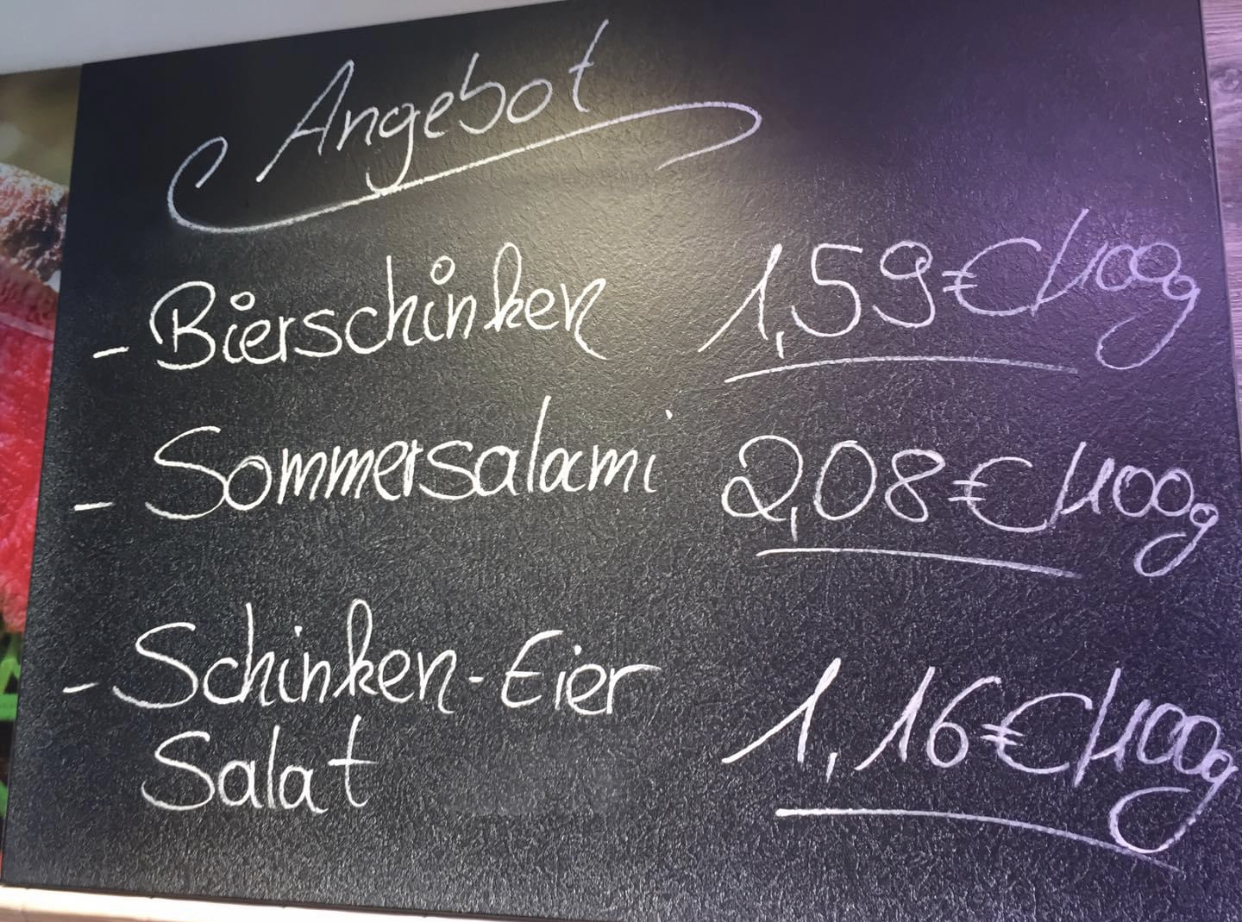 Angebot
- Bierschinken 1,59€/100g
- Sommersalami 2,08€/100g
- Schinken-Eier
Salat 1,16€/100g